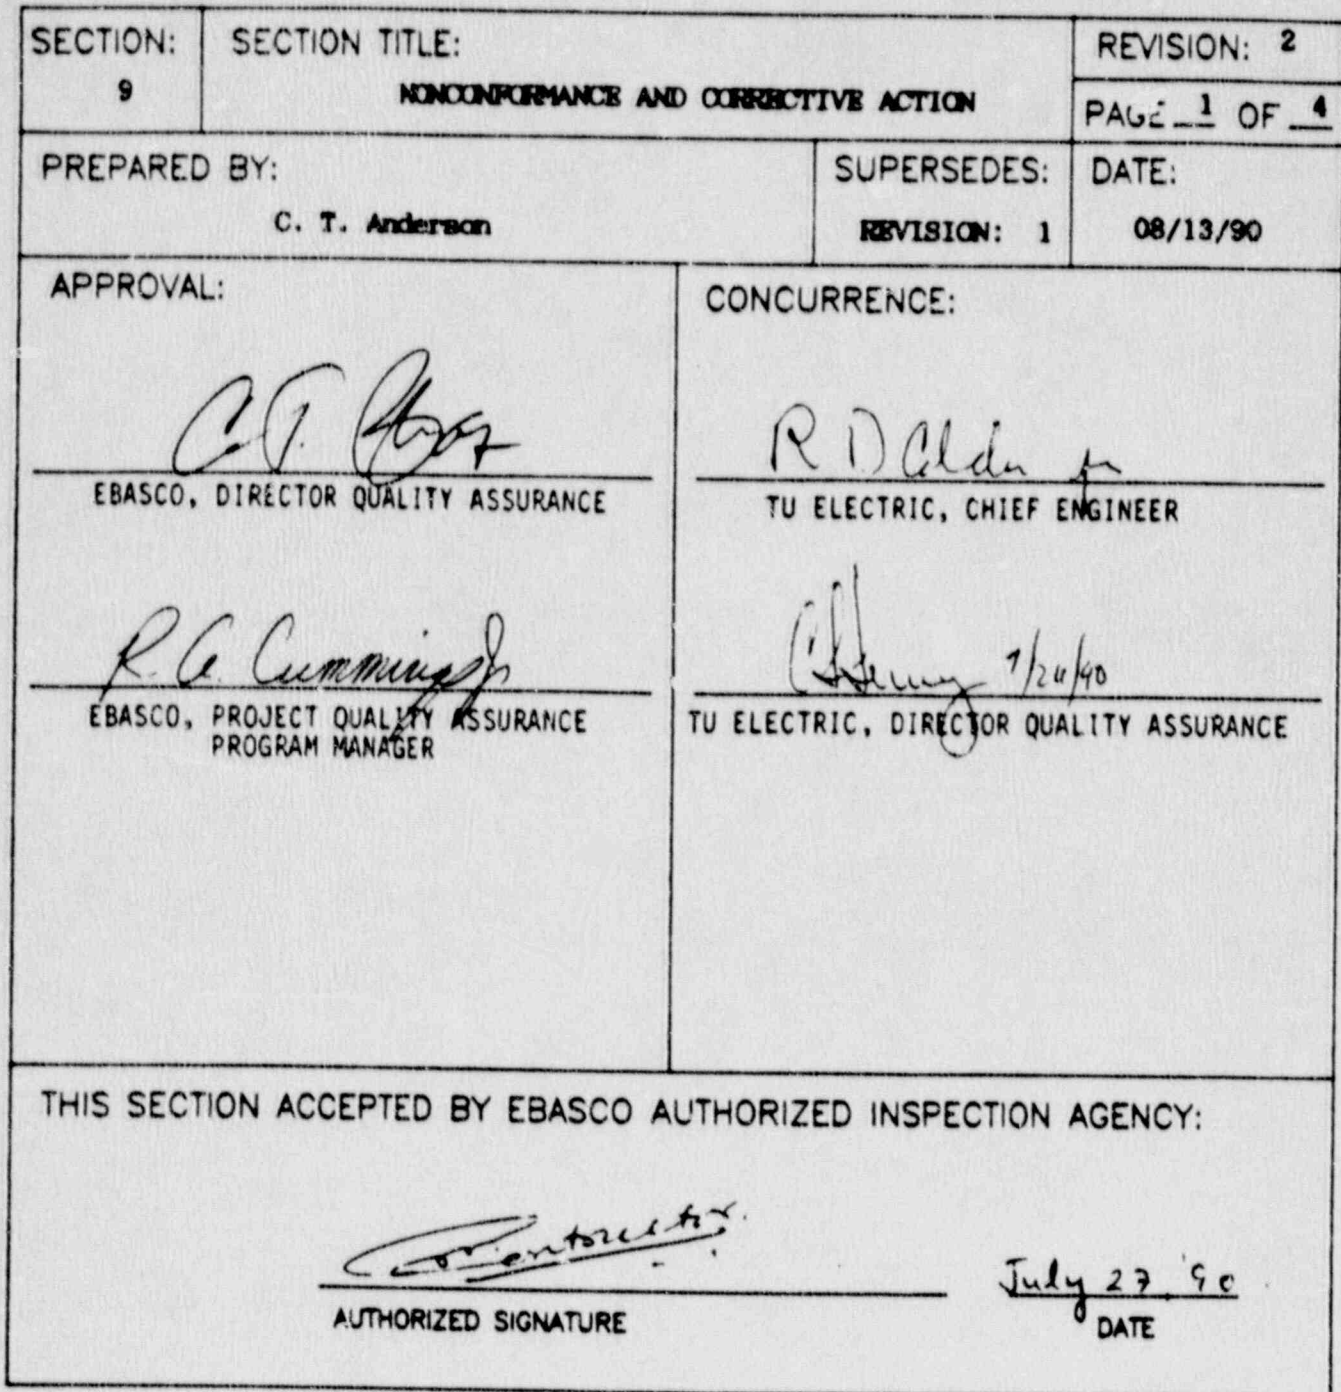 SECTION:
9
SECTION TITLE:
NONCONFORMANCE AND CORRECTIVE ACTION
REVISION: 2
PAGE 1 OF 4
PREPARED BY:
C. T. Anderson
SUPERSEDES:
REVISION: 1
DATE:
08/13/90
APPROVAL:
C. T.
EBASCO, DIRECTOR QUALITY ASSURANCE
R. A. Cummings Jr
EBASCO, PROJECT QUALITY ASSURANCE
PROGRAM MANAGER
CONCURRENCE:
R D Calder
TU ELECTRIC, CHIEF ENGINEER
TU ELECTRIC, DIRECTOR QUALITY ASSURANCE
THIS SECTION ACCEPTED BY EBASCO AUTHORIZED INSPECTION AGENCY:
AUTHORIZED SIGNATURE
July 27, 90
DATE